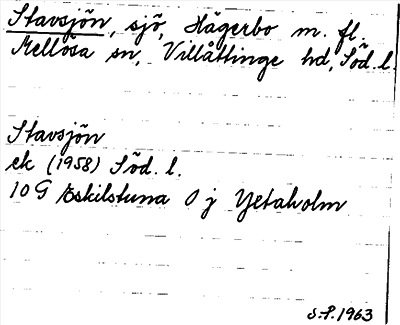 Stavsjön, sjö, Hägerbo m. fl.
Mellösa sn, Villåttinge hd, Söd. l.
Stavsjön
ek (1958) Söd. l.
10 G Eskilstuna 0 j Yetaholm
S.P. 1963